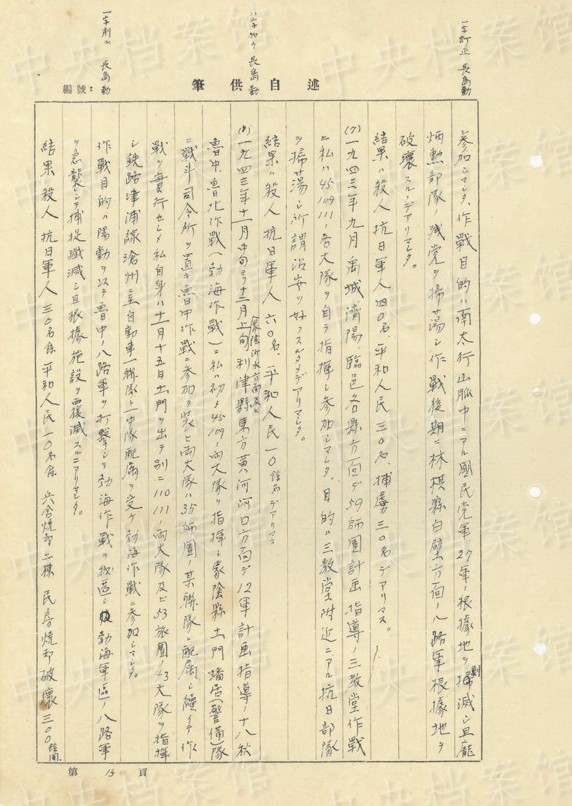 一字訂正 長島勤
八字加入 長島勤
一字削除 長島勤
述自供筆
編號:
参加シマシタ、作戰目的ハ南太行山脈中ニアル國民党軍、27軍ノ根據地ヲ掃滅シ且龐
炳勲部隊ノ残党ヲ掃蕩シ作戰後期ニ林県縣白壁方面ノ八路軍根據地ヲ
破壞スルニアリマシタ。
結果ハ殺人 抗日軍人 四〇名、平和人民 三〇名、捕虜 三〇名デアリマス。
(7) 一九四三年九月 禹城濟陽、臨邑各縣方面デ59師團計画指導ノ三教堂作戰
ニ私ハ45 109 111 各大隊ヲ自ラ指揮シ参加シマシタ。目的ハ三教堂附近ニアル抗日部隊
ヲ掃蕩シ所謂治安ヲ好クスルタメデアリマシタ。
結果ハ殺人 抗日軍人 六〇名、平和人民 一〇餘名デアリマス
(8) 一九四三年十一月中旬ヨリ十二月上旬利津縣東方黄河河口方面デ12軍計画指導ノ十八秋
魯中、魯北作戰(勃海作戰)ニ私ハ初メ45 109 両大隊ヲ指揮シ蒙陰縣土門踏居(警備)隊
ニ戰斗司令所ヲ置キ魯中作戰ニ参加ノ後ト両大隊ハ35師團ノ某聯隊ニ配屬シ續イテ作
戰ヲ實行セシメ私自身ハ十一月十五日土門ヲ出テ別ニ110 111 両大隊及ビ53旅團ノ43大隊ヲ指揮
シ鉄路津浦線滄州ニ至リ自動車聯隊ノ一中隊配屬ヲ受ケ勃海作戰ニ参加シマシタ。
作戰目的ハ陽動ヲ以テ魯中ノ八路軍ヲ打撃シ勃海作戰ヲ掩匿シ勃海軍區ノ八路軍
ヲ急襲シテ捕捉殲滅シ且根據施設ヲ覆滅スルニアリマシタ。
結果 殺人 抗日軍人 三〇名餘 平和人民 一〇名餘 六舍焼却二棟 民房焼却破壞 三〇〇餘間
第 15 頁
中央档案馆